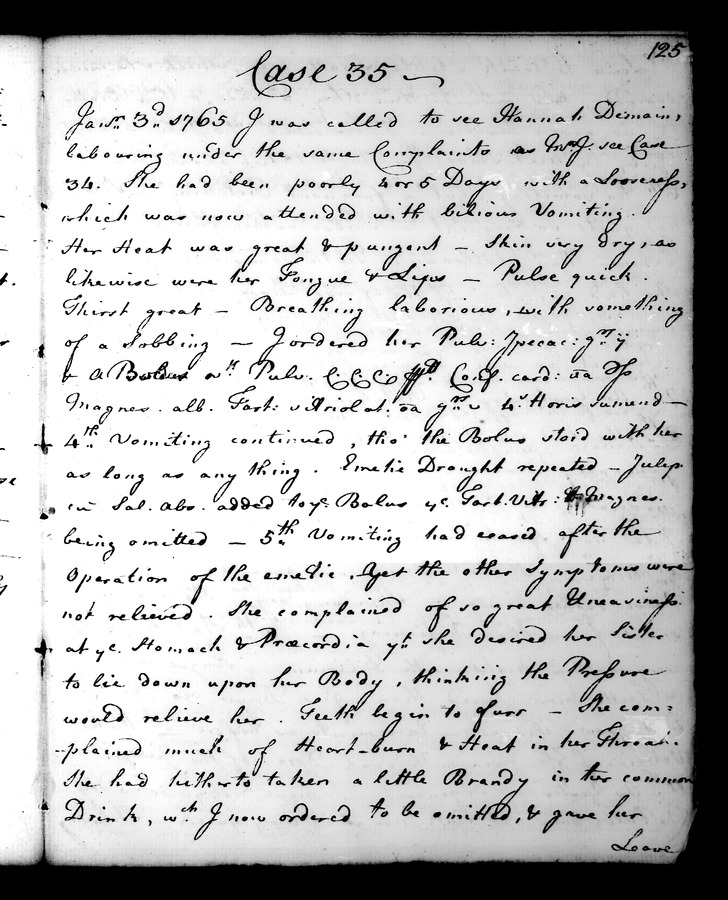 125
Case 35
Janry 3d 1765 I was called to see Hannah Demain,
labouring under the same Complaints as see Case
34. She had been poorly 4 or 5 Days with a Looseness,
which was now attended with bilious Vomiting.
Her Heat was great & pungent – Skin very dry, as
likewise were her Tongue & Lips – Pulse quick.
Thirst great – Breathing laborious, with something
of a Sobbing – I ordered her Pulv: Ipecac: grn ij
& a Bolus wth Pulv. C:C:C Conf. card: aa
Magnes. alb. Tart: vitriolat. aa grn v 4s Horis sumend –
4th Vomiting continued, tho' the Bolus staid with her
as long as any thing. Emetic Draught repeated – Julep
cu Sal. Abs. added to ye Bolus ye. Tart. Vitr: & Magnes.
being omitted – 5th Vomiting had ceased after the
Operation of the emetic. Yet the other Symptoms were
not relieved. She complained of so great Uneasiness
at ye. Stomach & Præcordia yt she desired her Sister
to lie down upon her Body, thinking the Pressure
would relieve her. Teeth begin to furr – She com=
-plained much of Heart-burn & Heat in her Throat.
She had hitherto taken a little Brandy in her common
Drink, wch I now ordered to be omitted, & gave her
Leave